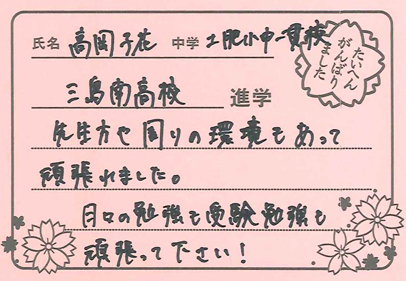 氏名 高岡子花 中学 土肥小中一貫校
たいへん
がんばり
ました
三島南高校 進学
先生方や周りの環境もあって
頑張れました。
日々の勉強も受験勉強も
頑張って下さい!